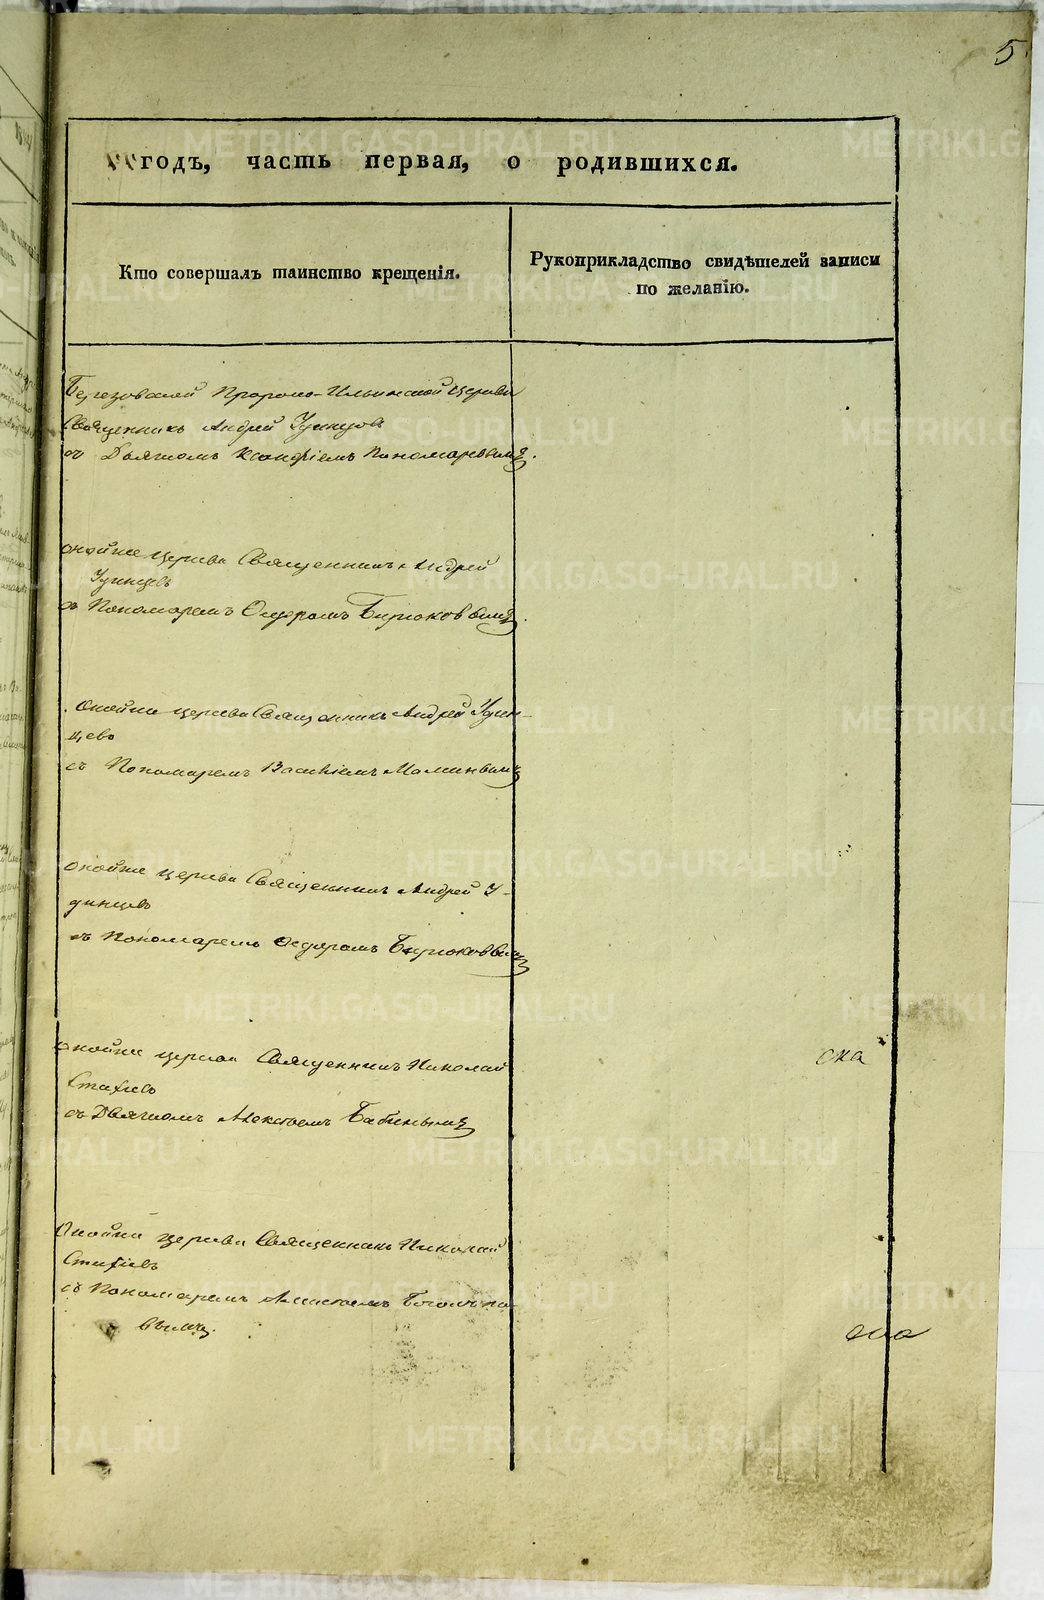 5
годъ, часть первая, о родившихся.
Кто совершалъ таинство крещенія.
Рукоприкладство свидѣтелей записи
по желанію.
Березовской Пророко-Ильинской Церкви
Священникъ Андрей Удинцовъ
съ Дьячкомъ Пономаревымъ.
оной же Церкви Священникъ Андрей
Удинцевъ
съ Пономаремъ Ѳедоромъ Бирюковымъ.
Оной же церкви Священникъ Андрей Удин-
цевъ
съ Пономаремъ Василіемъ Маминымъ
оной же церкви Священникъ Андрей У-
динцевъ
съ Пономаремъ Ѳедоромъ Бирюковымъ
оной же церкви Священникъ Николай
Стахіевъ
съ Дьячкомъ Алексѣемъ Бабинымъ
Оной же церкви Священникъ Николай
Стахіевъ
съ Пономаремъ
вымъ.
METRIKI.GASO-URAL.RU